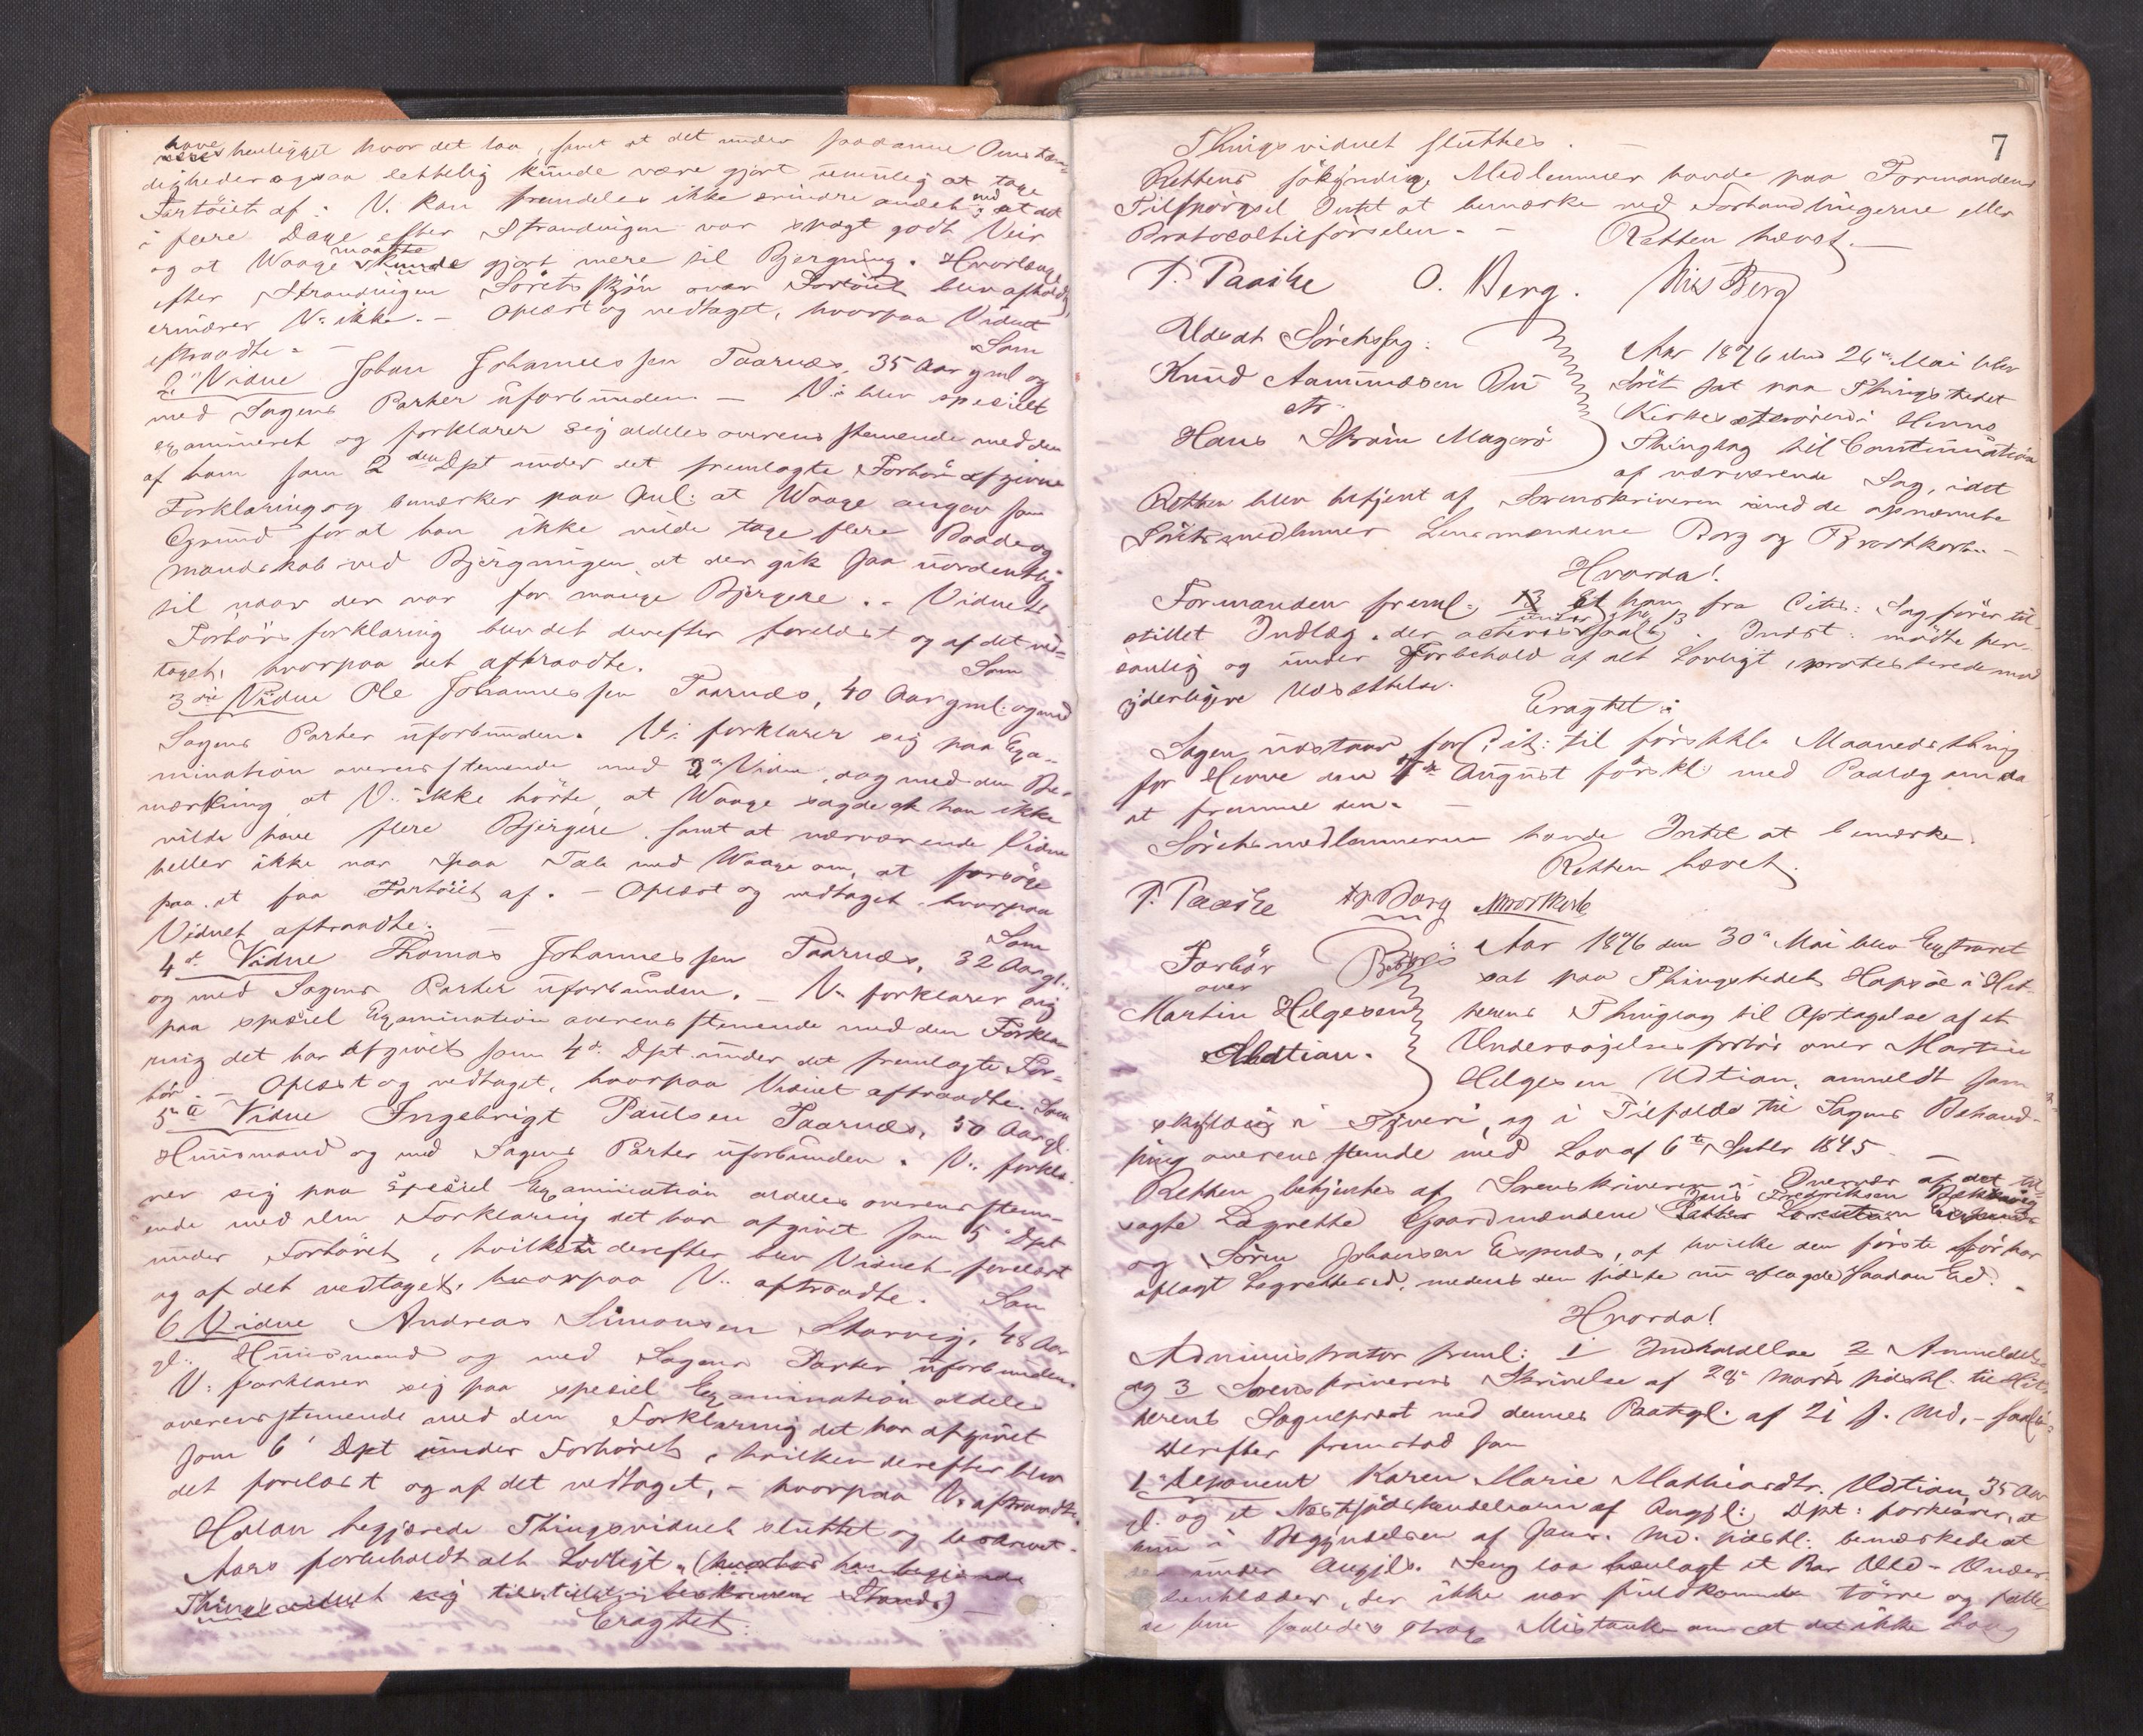 have henligget hvor det laa, samt at det under saadanne Omstæn-
digheder ogsaa lettelig kunde være gjort umulig at tage
Fartöiet af. V. kan fremdeles ikke erindre andet, end at det
i flere Dage efter Strandingen var svagt godt Veir
og at Waage maatte kunde gjort mere til Bjergning. Hvorlænge
efter Strandingen Söretsskjön over Fartöiet blev afholdt,
erindrer V. ikke. - Oplæst og vedtaget, hvorpaa Vidnet
aftraadte. - Som
2det Vidne Johan Johannessen Taarnæs, 35 Aar gml og
med Sagens Parter uforbunden. - V. blev specielt
examineret og forklarer sig aldeles overensstemmende med den
af ham som 2den Dpt under det fremlagte Forhör afgivne
Forklaring og bemærker paa Anl: at Waage angav som
Grund for at han ikke vilde tage flere Baade og
Mandskab ved Bjergningen, at der gik saa uordentlig
til naar der var for mange Bjergere. - Vidnets
Forhörsforklaring blev det derefter forelæst og af det ved-
taget, hvorpaa det aftraadte. Som
3die Vidne Ole Johannessen Taarnæs, 40 Aar gml: og med
Sagens Parter uforbunden. V: forklarer sig paa Exa-
mination overensstemmende med 2det Vidne, dog med den Be-
mærkning, at V. ikke hörte, at Waage sagde at han ikke
vilde have flere Bjergere, samt at nærværende Vidne
heller ikke var paa Tale med Waage om, at forsöge
paa at faa Fartöiet af. - Oplæst og vedtaget hvorpaa
Vidnet aftraadte. Som
4de Vidne Thomas Johannessen Taarnæs, 32 Aar gl.
og med Sagens Parter uforbunden. - V. forklarer sig
paa speciel Examination overensstemmende med den Forkla-
ring det har afgivet som 4de Dpt. under det fremlagte For-
hör. - Oplæst og vedtaget, hvorpaa Vidnet aftraadte. Som
5te Vidne Ingebrigt Paulsen Taarnæs, 50 Aar gl.
Huusmand og med Sagens Parter uforbunden. V. forkla-
rer sig paa speciel Examination aldeles overensstem-
ende med den Forklaring det har afgivet som 5te Dpt
under Forhöret, hvilken derefter blev Vidnet forelæst
og af det vedtaget, hvorpaa V. aftraadte. Som
6 Vidne Andreas Simonsen Storvig, 48 Aar
gl: Huusmand og med Sagens Parter uforbunden.
V: forklarer sig paa speciel Examination aldeles
overensstemmende med den Forklaring det har afgivet
som 6 Dpt under Forhöret, hvilken derefter blev
det forelæst og af det vedtaget, - hvorpaa V. aftraadte.
begjærede Thingsvidnet sluttet og beskrevet.
Aars forbeholdt alt Lovligt. (hvorhos han begjærede
Thingsvidnet sig tilstillet i beskreven Stand.) -
Eragtet:
7
Thingsvidnet sluttes. -
Rettens sökyndige Medlemmer havde paa Formandens
Tilspörgsel Intet at bemærke ved Forhandlingerne eller
Protocoltilförselen. - Retten hævet. -
P. Paaske O. Berg. Nils Berg
Udsat Söretssag:
Knud Aamundsen
ctr.
Hans Ström Magerö
Aar 1876 den 26de Mai blev
Söret sat paa Thingstedet
Kirkesæterören i Hevne
Thinglag til Continuation
af nærværende Sag, idet
Retten blev betjent af Sorenskriveren med de opnævnte
Söretsmedlemmer Lensmændene Borg og
Hvorda!
Formanden freml: 13 Et ham fra Cits: Sagförer til-
stillet Indlæg, der acteres saal: under No 13. Indst: mödte per-
sonlig og under Forbehold af alt Lovligt, protesterede mod
yderligere Udsættelse.
Eragtet:
Sagen udstaar for Cit: til förstkl. Maanedsthing
for Hevne den 7de August förstkl: med Paalæg om da
at fremme den. -
Söretsmedlemmerne havde Intet at bemærke.
Retten hævet.
P. Paaske Borg
Forhör
over
Martin Helgesen
Udtian.
Aar 1876 den 30te Mai blev Extraret
sat paa Thingstedet Hopsöe i Hit-
terens Thinglag til Optagelse af et
Undersögelsesforhör over Martin
Helgesen Udtian, anmeldt som
skyldig i Tyveri, og i Tilfælde til Sagens Behand-
ling overensstemde med Lov af 6te Septbr 1845. -
Retten betjentes af Sorenskriveren i Overvær af det til-
sagte Lagrette Gaardmændene Jens Fredriksen
og Sören Johansen Espnæs, af hvilke den förste för har
aflagt Lagrettesed, medens den sidste nu aflagde saadan Ed.
Hvorda!
Administrator freml: 1 Indkaldelse, 2 Anmeldelse
og 3 Sorenskriverens Skrivelse af 28de Marts sidstl. til Hit-
terens Sogneprest med dennes Paategn. af 21 f. Md., - saal:
Derefter fremstod som
1ste Deponent Karen Marie Mathiasdtr. Udtian, 35 Aar
gl. og et Næstsödskendebarn af Angjl: Dpt: forklarer, at
hun i Begyndelsen af Janr. Md. sidstl. bemærkede at
der under Angjls. Seng laa henlagt et Par Uld-Under-
benklæder, der ikke var fuldkommen törre og fatte-
de hun saaledes strax Mistanke om at det ikke hang